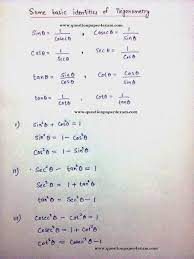 Some basic identities of Trigonometry
www.questionpaperz4exam.com
Sinθ = 1/Cosecθ , Cosecθ = 1/Sinθ
Cosθ = 1/Secθ , Secθ = 1/Cosθ
tanθ = Sinθ/Cosθ , Cotθ = Cosθ/Sinθ
tanθ = 1/Cotθ , Cotθ = 1/tanθ
www.questionpaperz4exam.com
i) Sin²θ + Cos²θ = 1
Sin²θ = 1 - Cos²θ
Cos²θ = 1 - Sin²θ
ii) Sec²θ - tan²θ = 1
Sec²θ = 1 + tan²θ
tan²θ = Sec²θ - 1
iii) Cosec²θ - Cot²θ = 1
Cosec²θ = 1 + Cot²θ
Cot²θ = Cosec²θ - 1
www.questionpaperz4exam.com